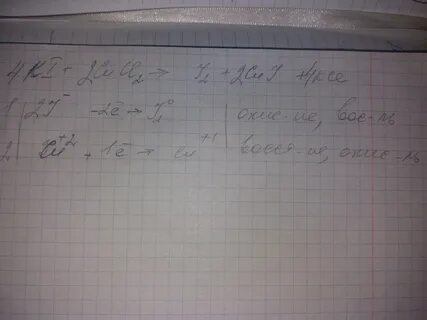 4KI + 2CuCl₂ → I₂ + 2CuI + 4KCl
1 | 2I⁻ -2ē → I₂⁰ | окис-ие, вос-ль
2 | Cu⁺² + 1ē → Cu⁺¹ | восст-ие, окис-ль